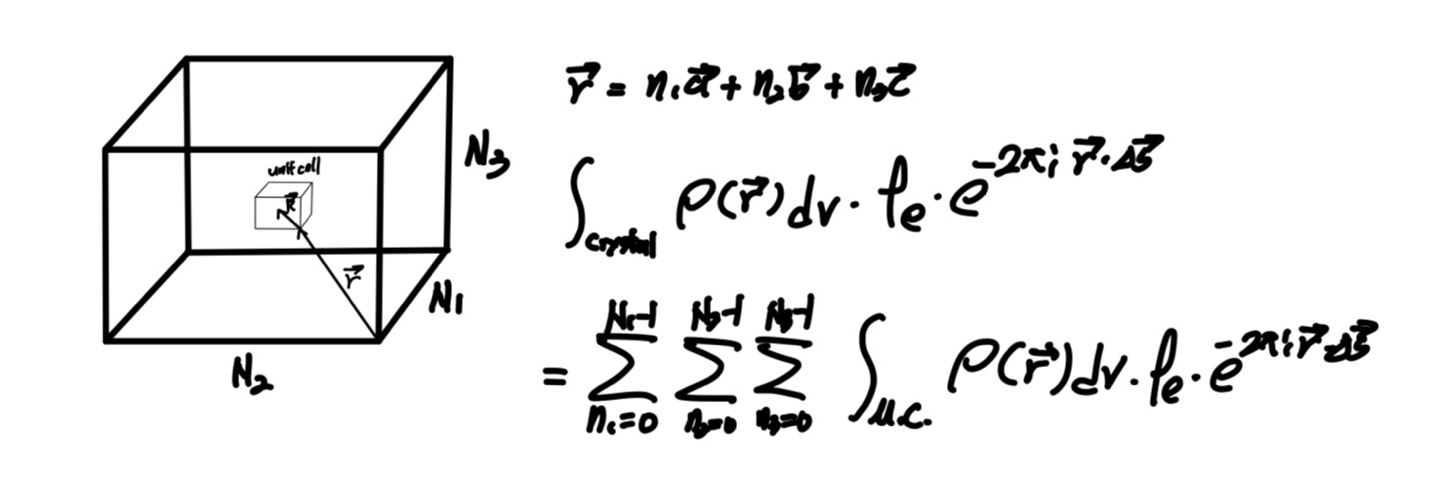 N₃
unit cell
R⃗
r⃗
N₁
N₂
r⃗ = n₁a⃗ + n₂b⃗ + n₃c⃗
∫crystal ρ(r⃗)dv · fe · e^(-2πi r⃗·Δs⃗)
= Σ(n₁=0 to N₁-1) Σ(n₂=0 to N₂-1) Σ(n₃=0 to N₃-1) ∫u.c. ρ(r⃗)dv · fe · e^(-2πi r⃗·Δs⃗)